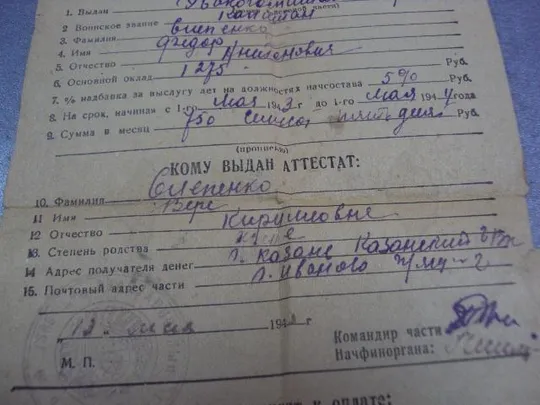 1. Выдан
2. Воинское звание Капитан
3. Фамилия Слепенко
4. Имя Федор
5. Отчество Антонович
6. Основной оклад 1275 Руб.
7. % надбавка за выслугу лет на должностях начсостава 5% Руб.
8. На срок, начиная с 1-го мая 1943 г. до 1-го мая 1944 года
9. Сумма в месяц 750 семьсот пятьдесят Руб.
(прописью)
КОМУ ВЫДАН АТТЕСТАТ:
10. Фамилия Слепенко
11 Имя Вере
12 Отчество Кирилловне
13. Степень родства жене
14 Адрес получателя денег г. Казань Казанский
15. Почтовый адрес части г. Иваново
194 г
М. П.
Командир части
Начфиноргана:
к оплате: